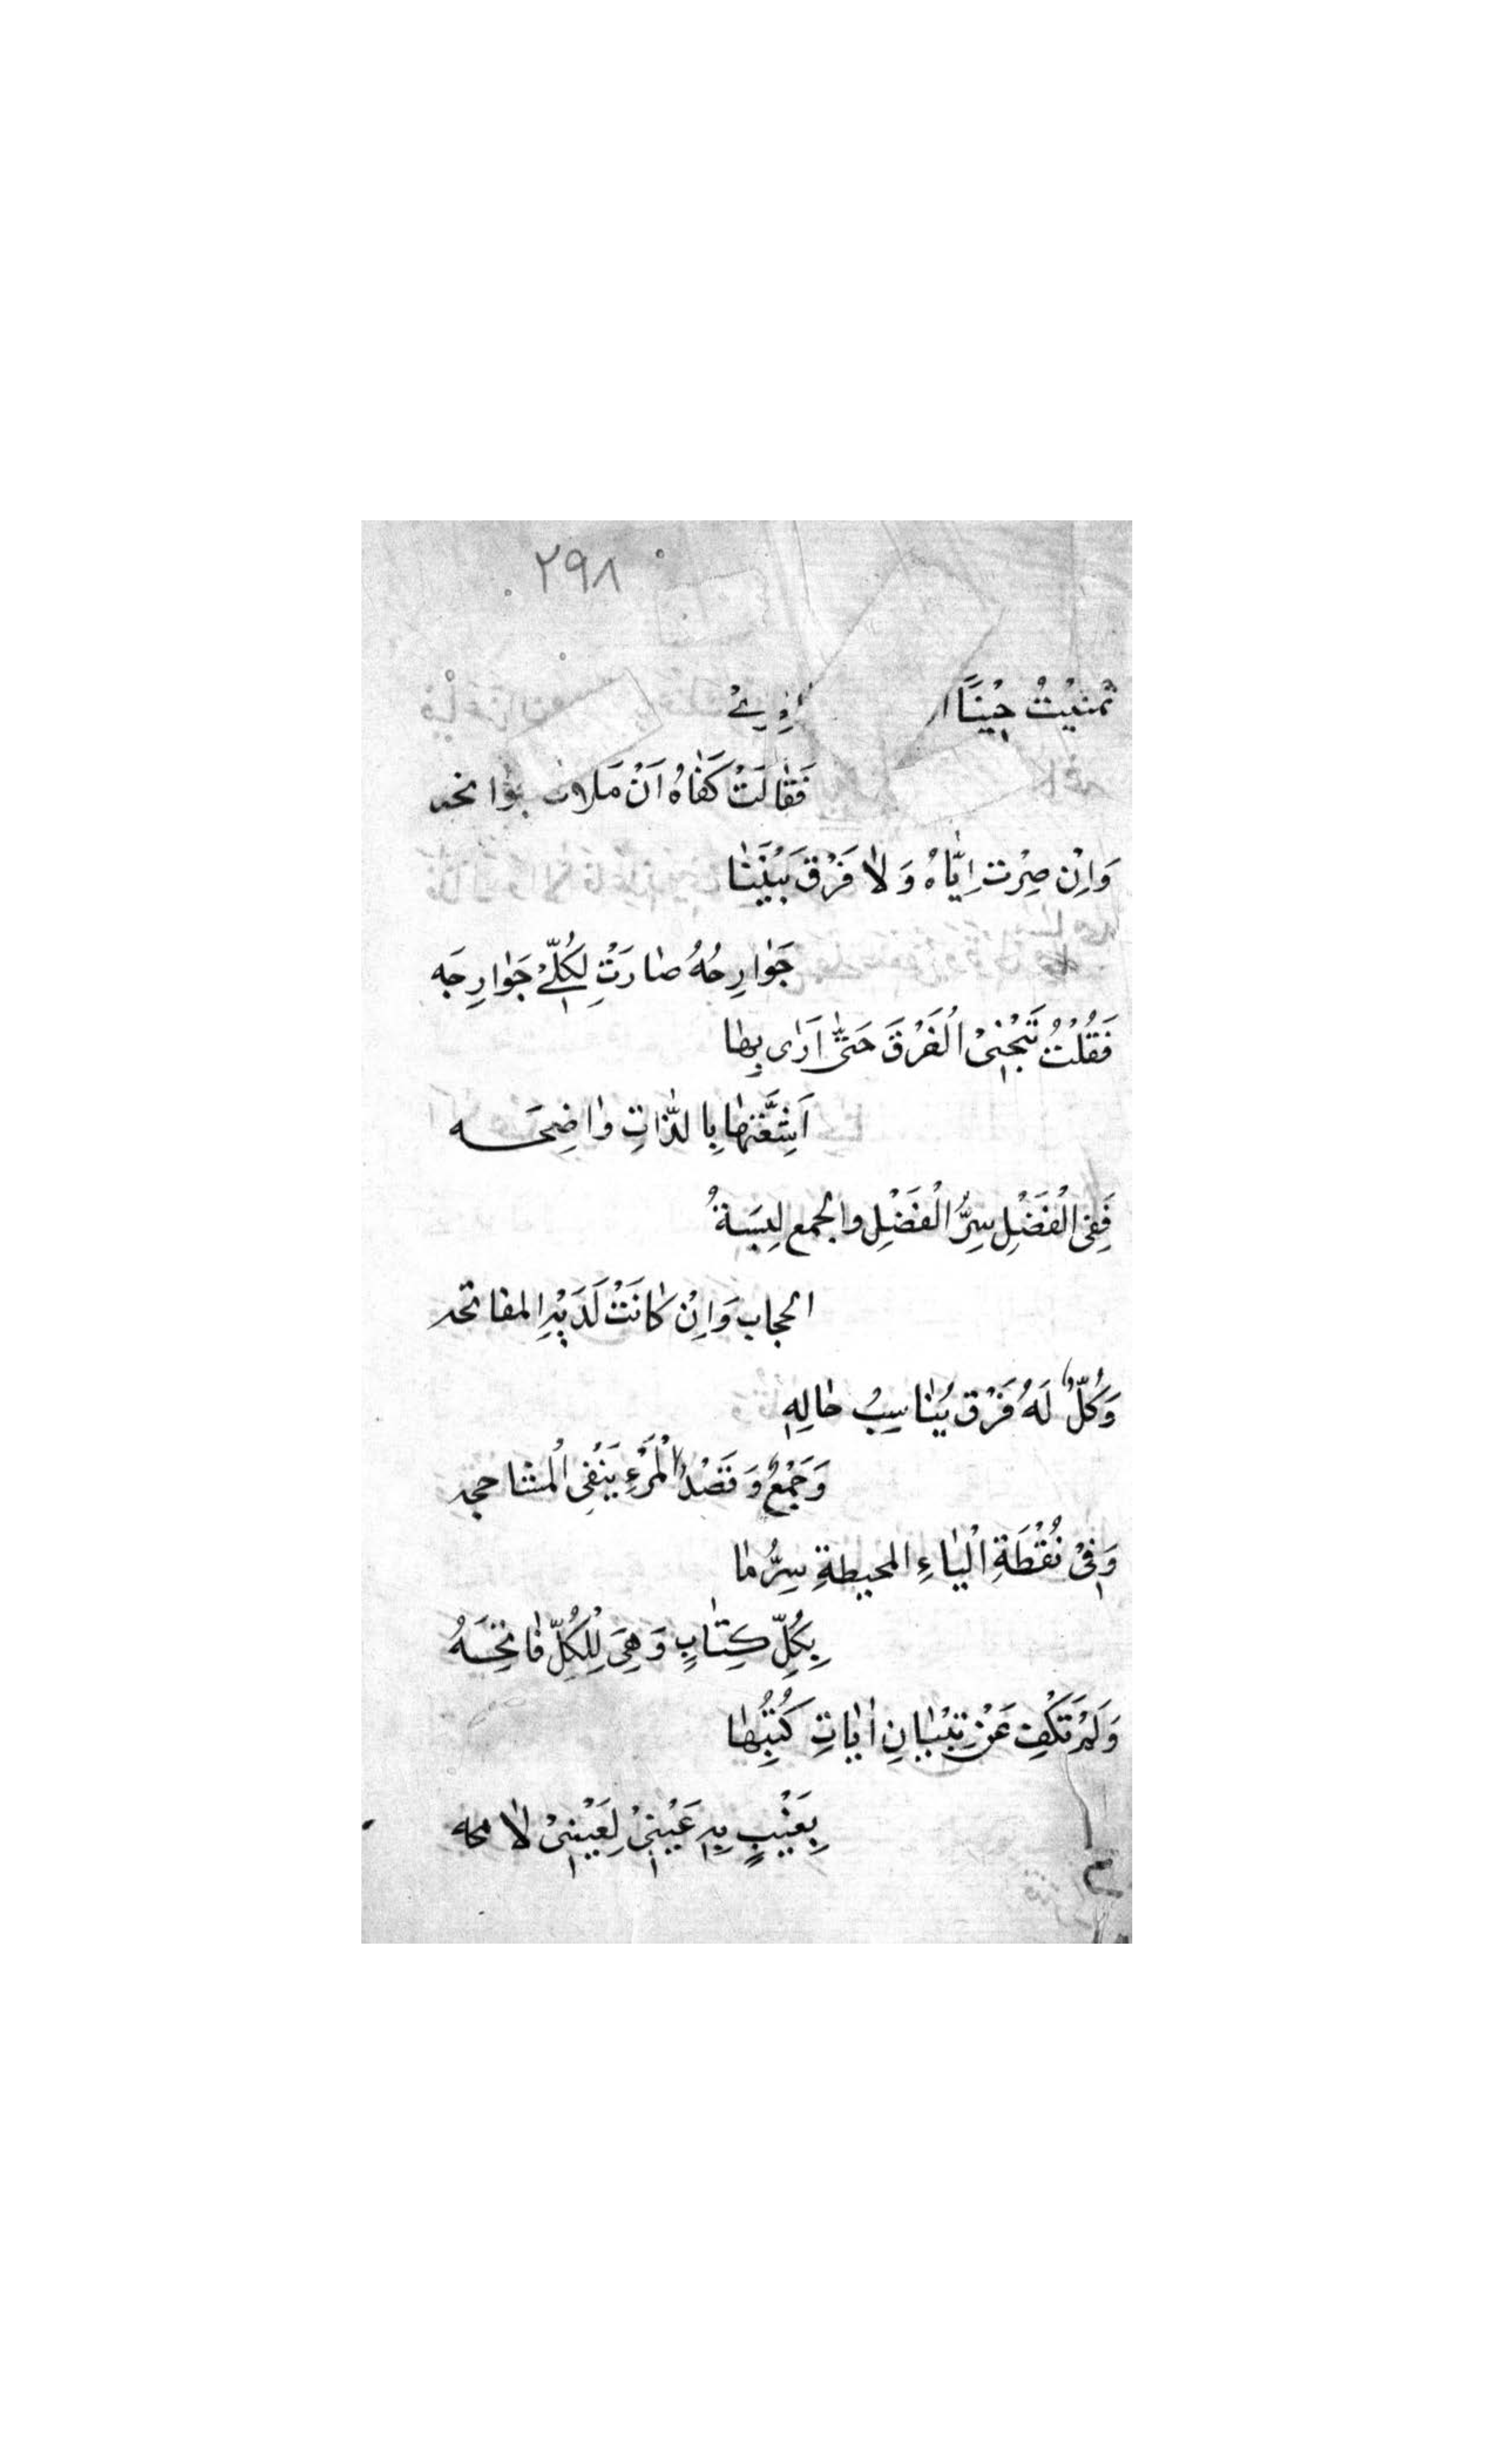 ٢٩٨
تمنيتُ حِيْنًا
فَقَالَتْ كَفَاهُ اَنْ مَلَات
وَاِن صِرْت اِيَّاهُ وَلَا فَرْق بَيْنَنَا
جَوَارِحُهُ صَارَتْ لِكُلّيْ جَوَارِحَه
فَقُلْتُ الْفَرْقَ حَتّٰى اَرٰى بِهَا
اَشِعَّتهَا بِالذّاتِ وَاضِحَه
فَفِي الْفَضْلِ سِرُّ الْفَضْلِ والجمع
الحجاب وَاِنْ كَانَتْ لَدَيْهِ المفاتحه
وَكُلٌّ لَهُ فَرْق يُنَاسِبُ حَالِهِ
وَجَمْعٌ وَقَصْدُ الْمَرْءِ يَنْفِي
وَفِيْ نُقْطَةِ الْيَاءِ المحيطةِ سِرُّ مَا
بِكُلِّ كِتَابٍ وَهِيَ لِلْكُلِّ فَاتِحَهُ
وَلَمْ تَكْفِ عَنْ تِبْيَانِ اٰيَاتِ كُتْبِهَا
بِغَيْبٍ بِهِ عَيْنِيْ لِعَيْنِيْ لَامحه